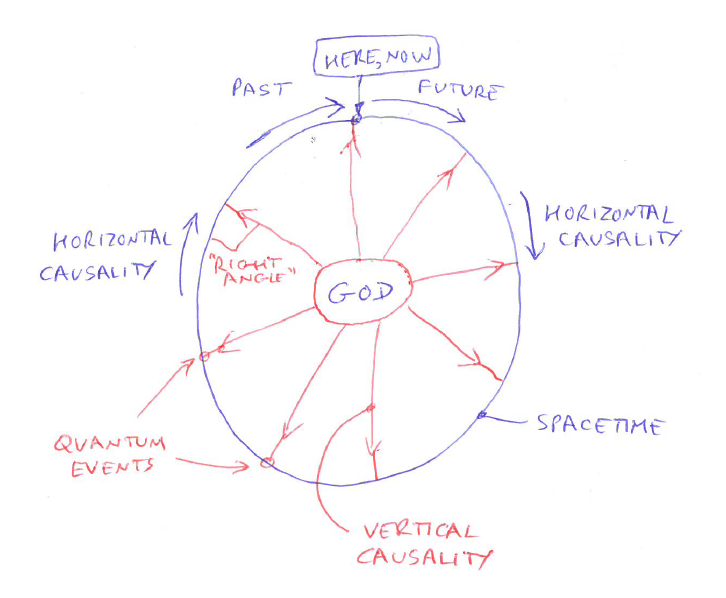 HERE, NOW
PAST
FUTURE
HORIZONTAL
CAUSALITY
HORIZONTAL
CAUSALITY
"RIGHT
ANGLE"
GOD
SPACETIME
QUANTUM
EVENTS
VERTICAL
CAUSALITY